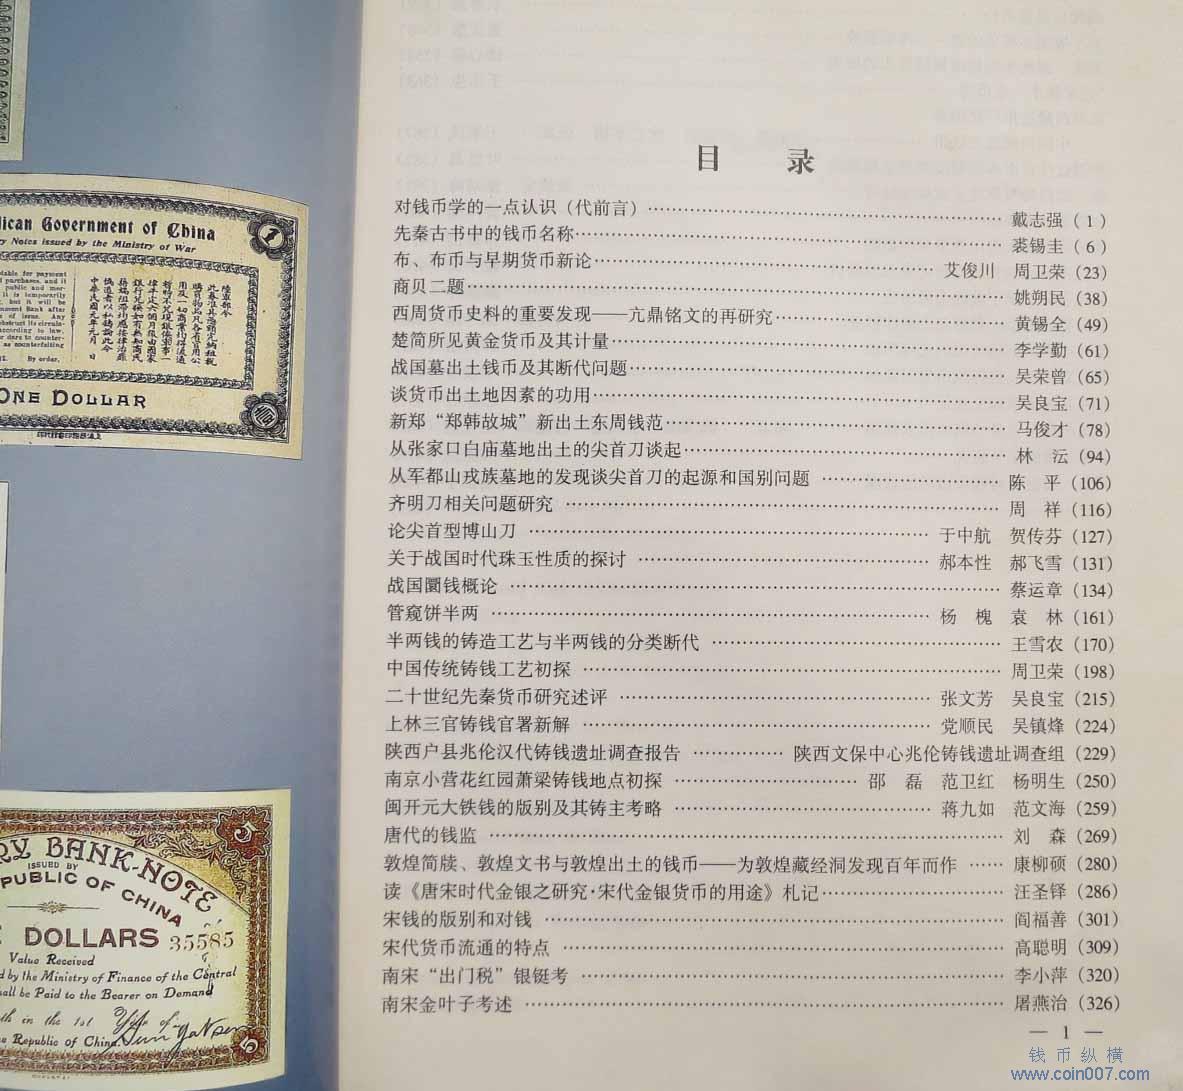 lican Government of China
ry Notes issued by the Ministry of War
1
dable for payment
purchases, and it
public and mer-
it is temporarily
but it will be
ernment Bank after
of issue. Any
obstruct its circula-
according to law.
r dare to counter-
as counterfeiting
By order,
中華民國元年元月 日
ONE DOLLAR
壹圓
5
RY BANK-NOTE
ISSUED BY
PUBLIC OF CHINA
DOLLARS 35585
Value Received
d by the Ministry of Finance of the Central
hall be Paid to the Bearer on Demand
th in the 1st Year of
he Republic of China.
Sun Yat Sen
5
目 录
对钱币学的一点认识（代前言）……戴志强（1）
先秦古书中的钱币名称……裘锡圭（6）
布、布币与早期货币新论……艾俊川 周卫荣（23）
商贝二题……姚朔民（38）
西周货币史料的重要发现——亢鼎铭文的再研究……黄锡全（49）
楚简所见黄金货币及其计量……李学勤（61）
战国墓出土钱币及其断代问题……吴荣曾（65）
谈货币出土地因素的功用……吴良宝（71）
新郑“郑韩故城”新出土东周钱范……马俊才（78）
从张家口白庙墓地出土的尖首刀谈起……林 沄（94）
从军都山戎族墓地的发现谈尖首刀的起源和国别问题……陈 平（106）
齐明刀相关问题研究……周 祥（116）
论尖首型博山刀……于中航 贺传芬（127）
关于战国时代珠玉性质的探讨……郝本性 郝飞雪（131）
战国圜钱概论……蔡运章（134）
管窥饼半两……杨 槐 袁 林（161）
半两钱的铸造工艺与半两钱的分类断代……王雪农（170）
中国传统铸钱工艺初探……周卫荣（198）
二十世纪先秦货币研究述评……张文芳 吴良宝（215）
上林三官铸钱官署新解……党顺民 吴镇烽（224）
陕西户县兆伦汉代铸钱遗址调查报告……陕西文保中心兆伦铸钱遗址调查组（229）
南京小营花红园萧梁铸钱地点初探……邵 磊 范卫红 杨明生（250）
闽开元大铁钱的版别及其铸主考略……蒋九如 范文海（259）
唐代的钱监……刘 森（269）
敦煌简牍、敦煌文书与敦煌出土的钱币——为敦煌藏经洞发现百年而作……康柳硕（280）
读《唐宋时代金银之研究·宋代金银货币的用途》札记……汪圣铎（286）
宋钱的版别和对钱……阎福善（301）
宋代货币流通的特点……高聪明（309）
南宋“出门税”银铤考……李小萍（320）
南宋金叶子考述……屠燕治（326）
— 1 —
钱币纵横
www.coin007.com